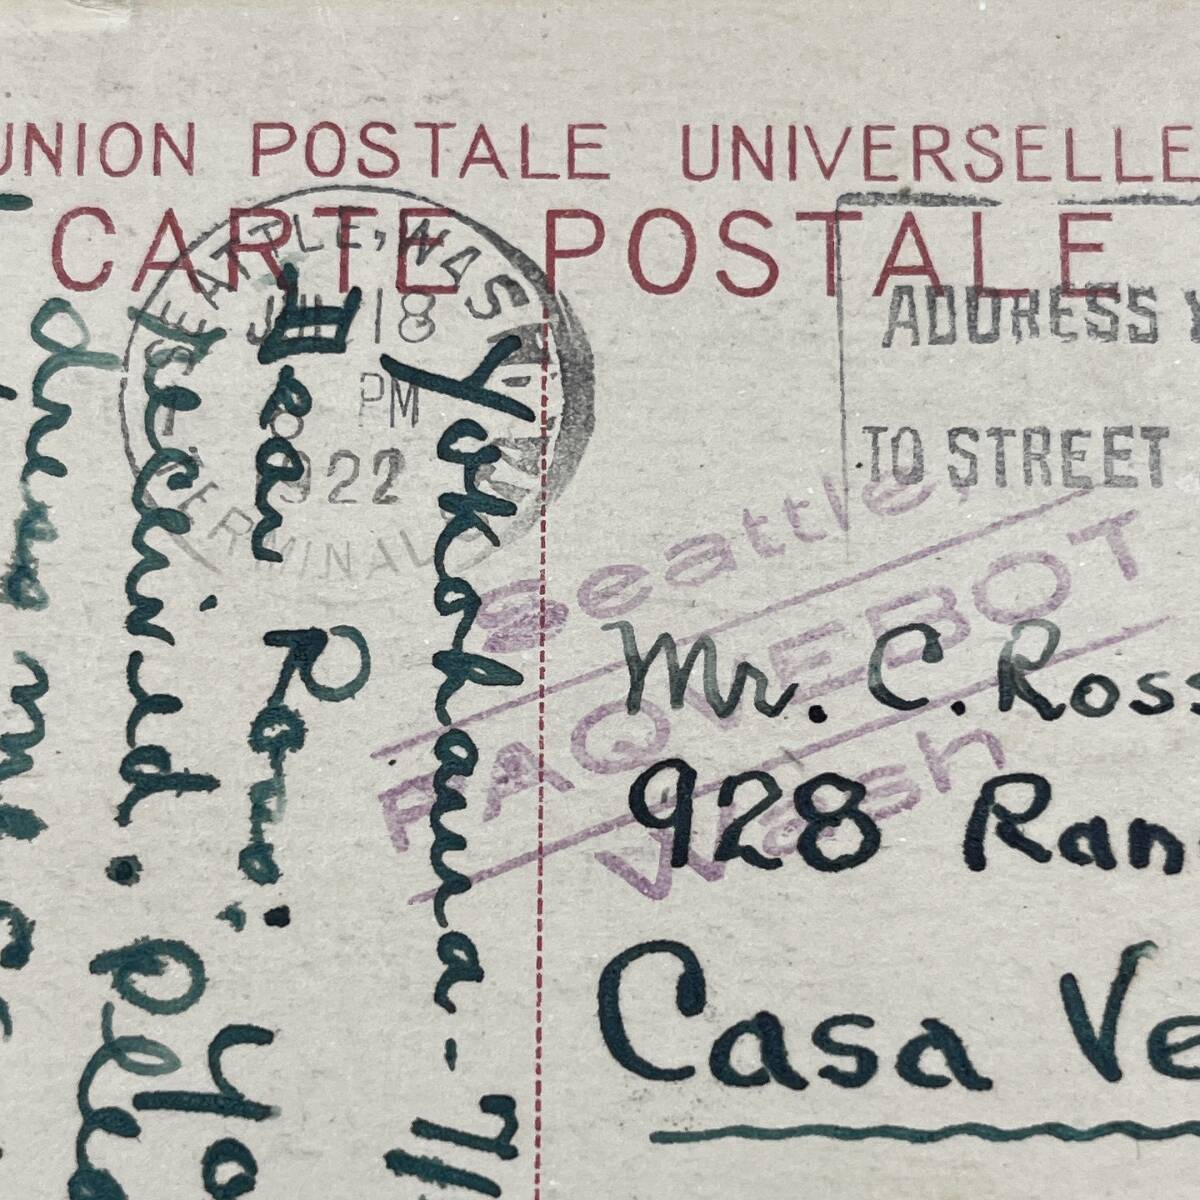 UNION POSTALE UNIVERSELLE
CARTE POSTALE
SEATTLE, WASH
JUL 18
PM
1922
TERMINAL
ADDRESS
TO STREET
Seattle,
PAQUEBOT
Wash
Mr. C. Ross
928 Ran
Casa Ve
Yokohama - 7/
Dear Rossi: Yo
received. Plea